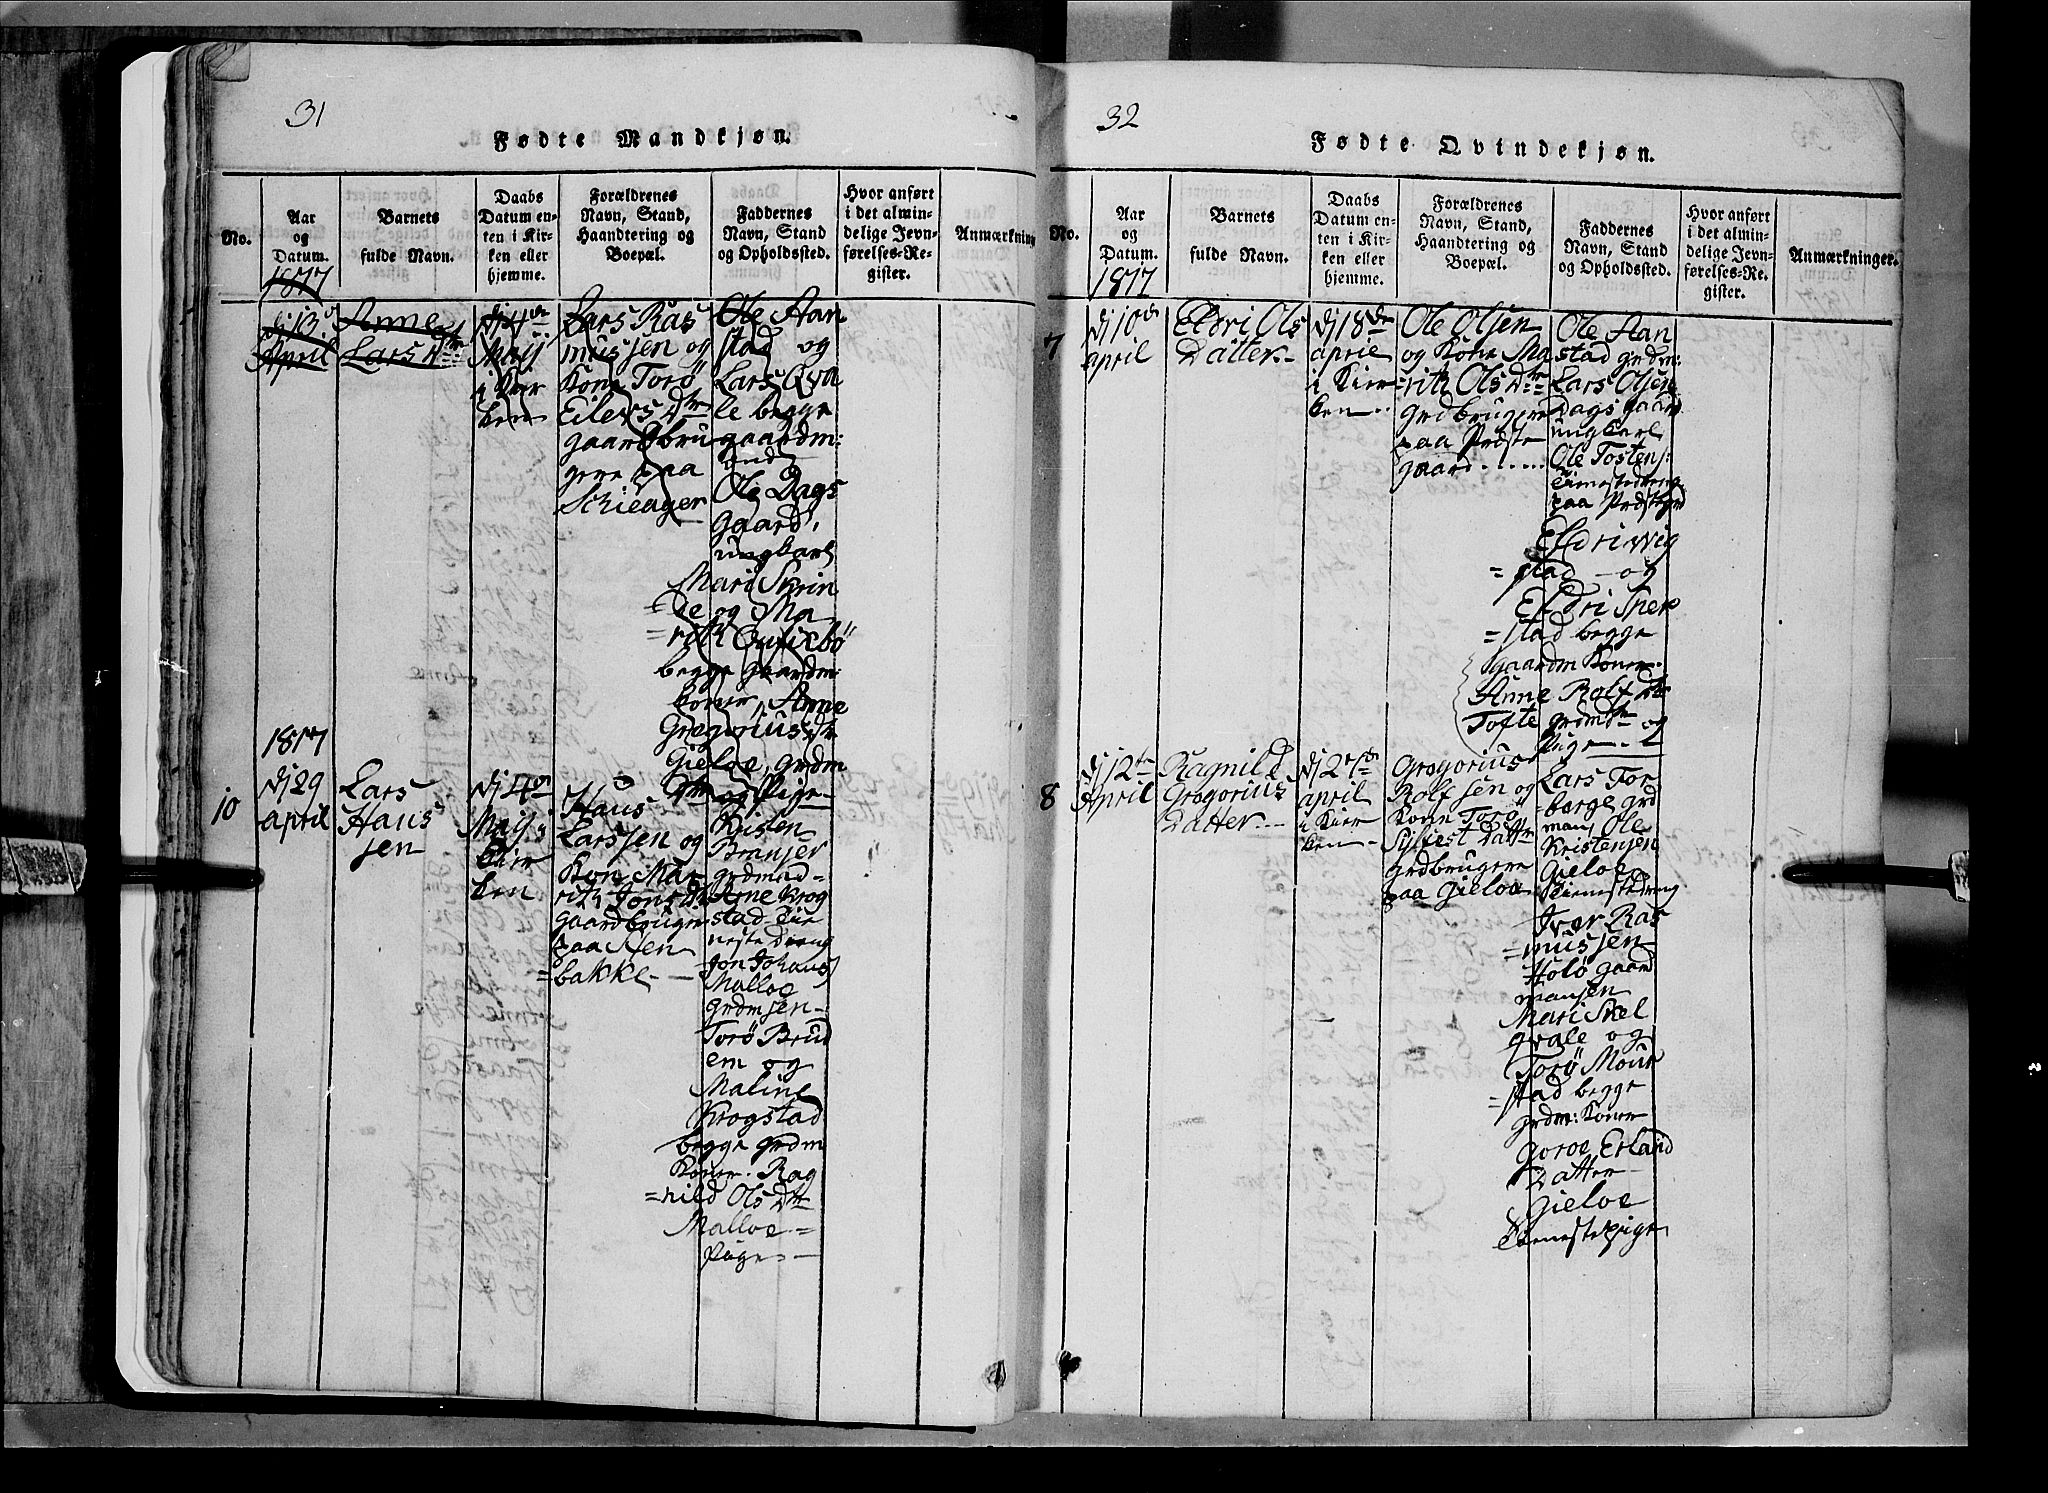 31
Fødte Mandkjøn.
No.
Aar
og
Datum.
Barnets
fulde Navn.
Daabs
Datum en-
ten i Kir-
ken eller
hjemme.
Forældrenes
Navn, Stand,
Haandtering og
Boepæl.
Faddernes
Navn, Stand
og Opholdssted.
Hvor anført
i det almin-
delige Jevn-
førelses-Re-
gister.
Anmærkning
1817
dj 13
April
Anne
Lars Dtr
dj 4de
Maij
i Kir
ken
Lars Ras
mussen og
Kone Torö
Eilers Dtr
gaardbru
gere paa
Schieager
Ole Aan
stad og
Lars Qva
le begge
gaardm:
Ole Dags
gaard
ungkarl
Mari Skrin
de og Ma
=rith
begge gaardm
koner, Anne
Gregorius Dtr
Gieloe grdm
og Pige
1817
10
dj 29
april
Lars
Hans
sen
dj 4de
Maij i
Kier
ken
Hans
Larssen og
Kon Mar
rith Jons Dtr
gaardbruger
paa Sten
=bakke
Kristen
Brimser
grdmand
Arne Krog
stad Tie
neste dreng
Jon Johans
Malloe
grdmsen
Torö Brud
em og
Maline
Krogstad
begge grdm
Koner. Rag
=nild Ols Dtr
Malloe
Pige
32
Fødte Qvindekjøn.
No.
Aar
og
Datum.
Barnets
fulde Navn.
Daabs
Datum en-
ten i Kir-
ken eller
hjemme.
Forældrenes
Navn, Stand,
Haandtering og
Boepæl.
Faddernes
Navn, Stand
og Opholdssted.
Hvor anført
i det almin-
delige Jevn-
førelses-Re-
gister.
Anmærkninger.
1817
7
dj 10de
april
Eldri Ols
Datter
dj 18de
april
i Kier
ken
Ole Olsen
og Kone Ma
=rith Ols Dtr
grdbrugere
paa Præste
gaard
Ole Aan
stad grdm:
Lars Olsen
Dagsgaard
ungkarl
Ole Tostens:
Tienestedreng
paa Præstegrd
Eldri Wig
=stad og
Eldri Sper
=stad begge
gaardm Koner
Anne Rolf Dtr
Tofte grdm og
Pige
8
dj 12te
April
Ragnild
Gregorius
Datter
dj 27de
april
i Kier
ken
Gregorius
Rolfsen og
Kone Torö
Syfest Dattr
grdbrugere
paa Gieloe
Lars Tor
berge grd
man, Ole
Kristensen
Gieloe
Tienestedreng
Iver Ras
=mussen
Holö gaard
mansen
Mari Skel
qvale og
Torö Mour
=stad begge
grdm: Koner
Goroe Erland
Datter
Gieloe
Tienestepige